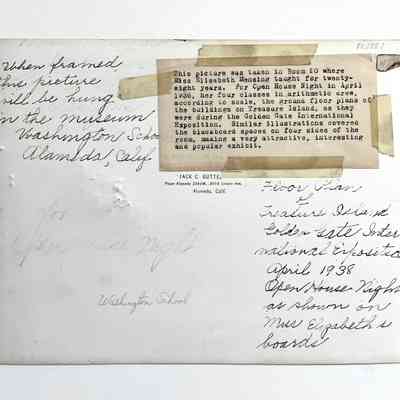 When framed
this picture
will be hung
in the museum
Washington School
Alameda, Calif.
This picture was taken in Room 10 where
Miss Elizabeth Mensing taught for twenty-
eight years. For Open House Night in April
1938, her four classes in arithmetic drew,
according to scale, the ground floor plans of
the buildings on Treasure Island, as they
were during the Golden Gate International
Exposition. Similar illustrations covered
the blackboard spaces on four sides of the
room, making a very attractive, interesting
and popular exhibit.
JACK C.
Alameda, Calif.
Floor Plan
of
Treasure Island
Golden Gate Inter
national Exposition
April 1938
Open House Night
as shown on
Miss Elizabeth's
boards
Washington School